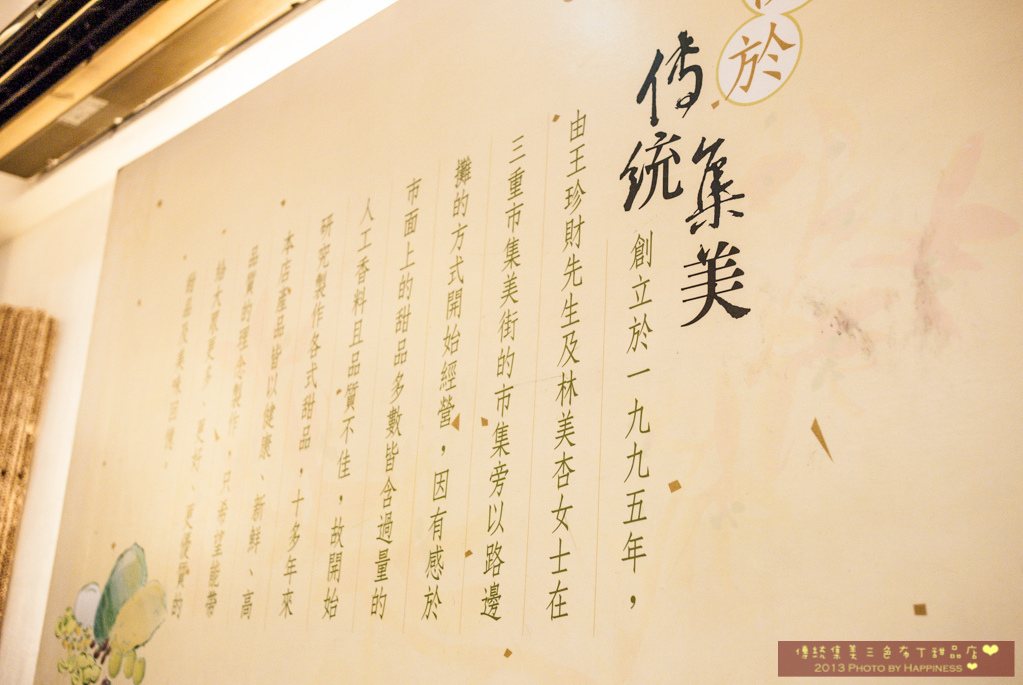 於
傳統
集美
創立於一九九五年，
由王珍財先生及林美杏女士在
三重市集美街的市集旁以路邊
攤的方式開始經營，因有感於
市面上的甜品多數皆含過量的
人工香料且品質不佳，故開始
研究製作各式甜品，十多年來
本店產品皆以健康、新鮮、高
品質的理念製作，只希望能帶
給大眾更多、更好、更優質的
甜品及美味回憶。
傳統集美三色布丁甜品店❤
2013 PHOTO BY HAPPINESS ❤